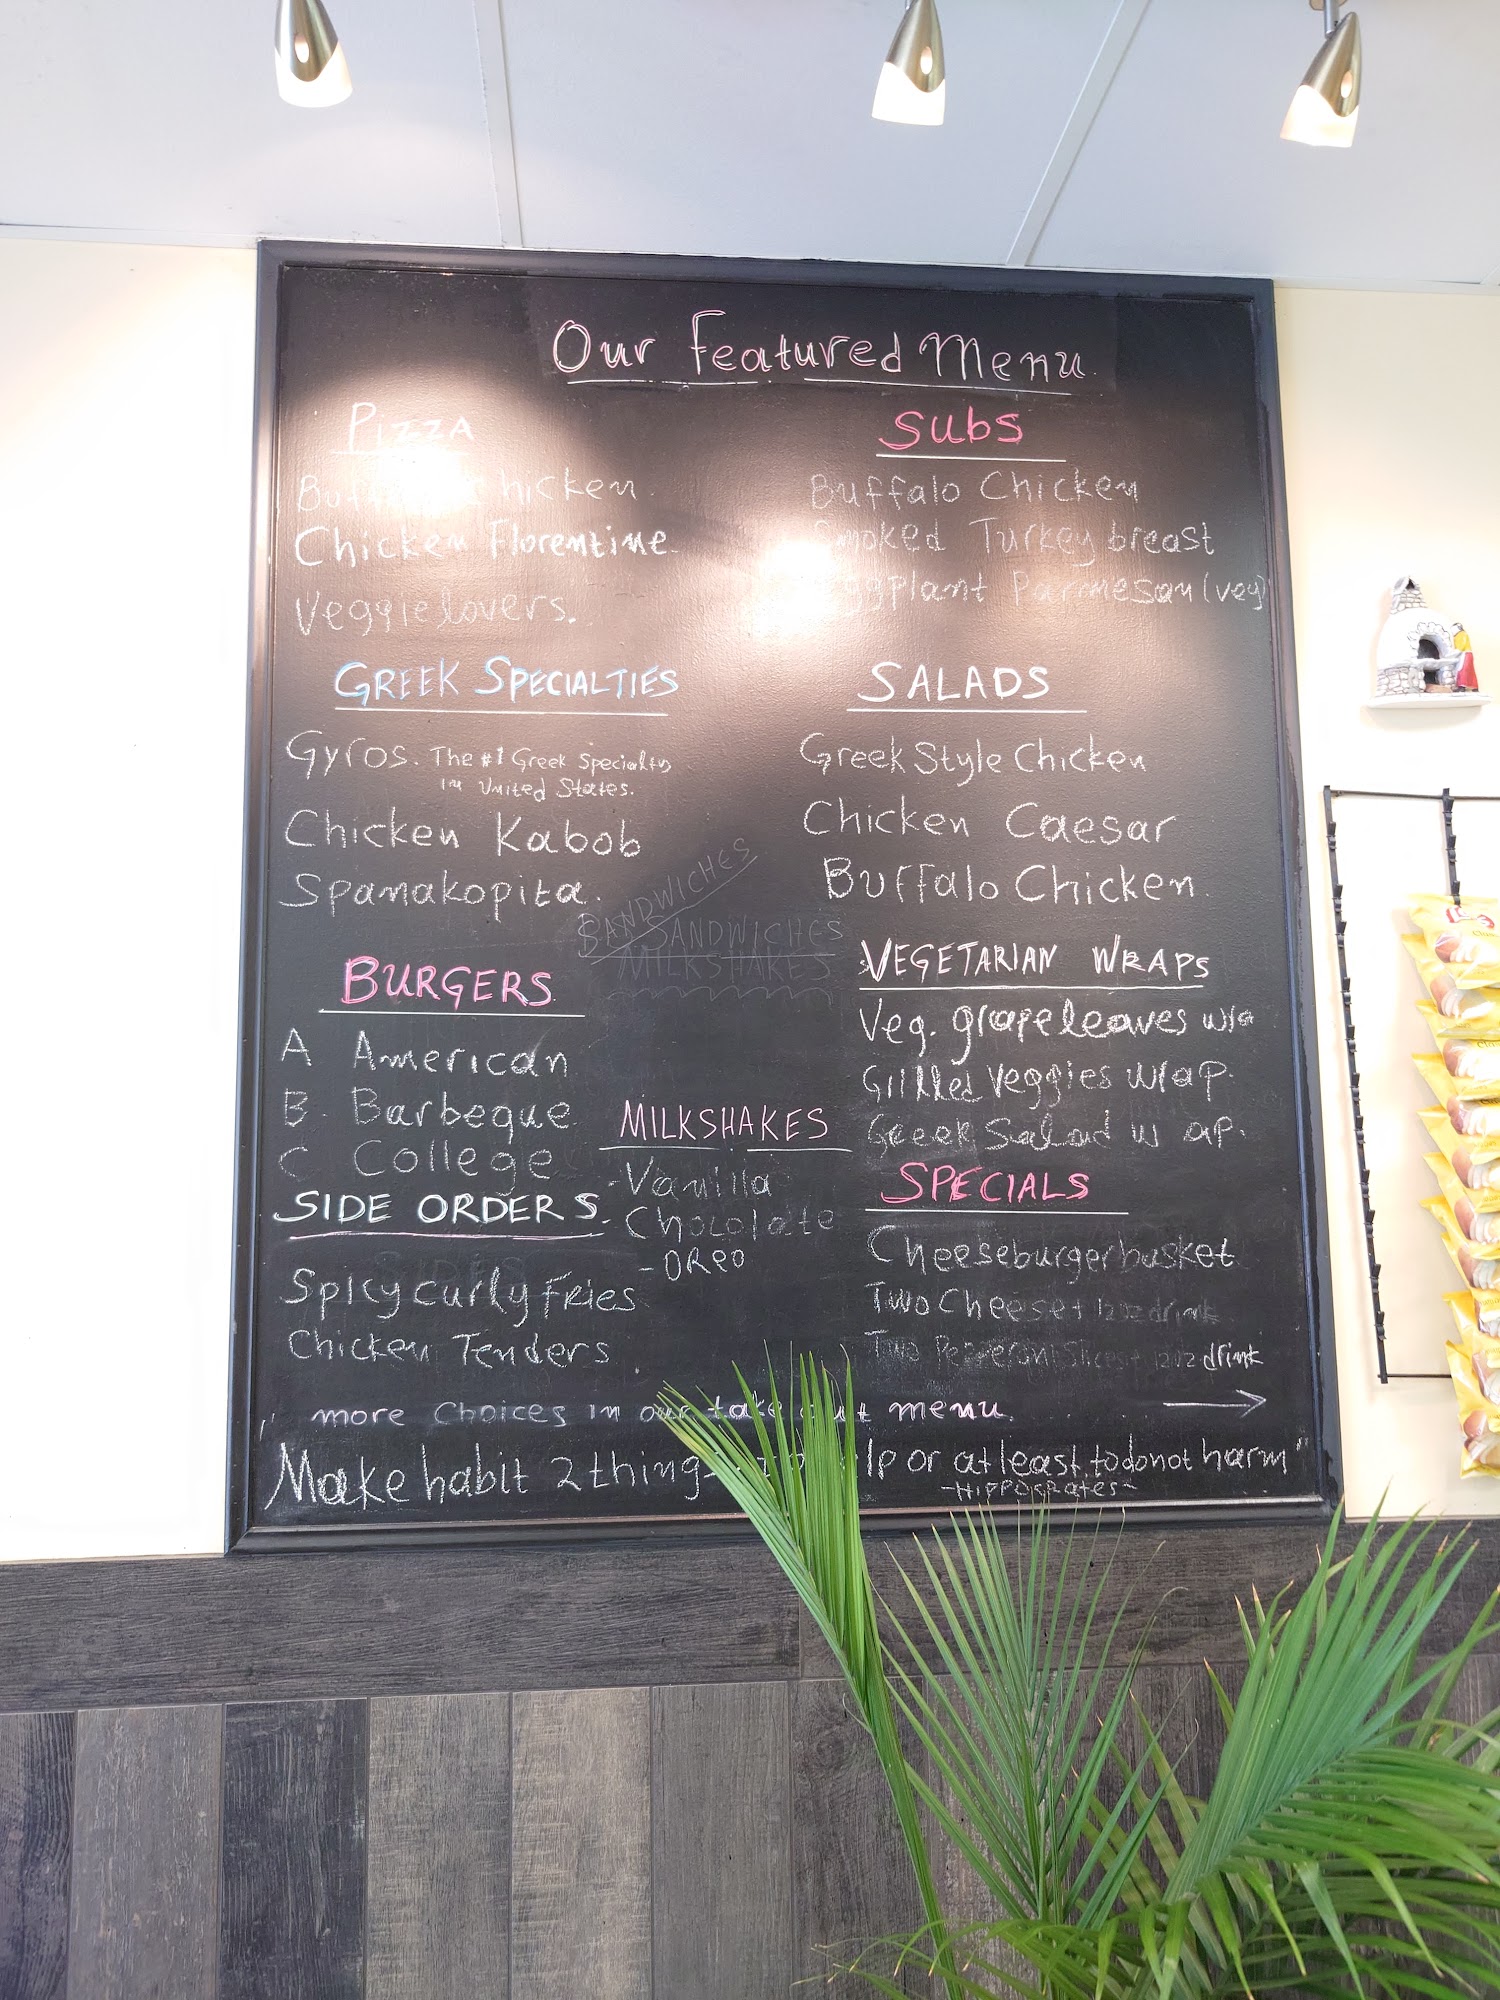 Our Featured Menu
Pizza
Buffalo Chicken
Chicken Florentine
Veggielovers.
Greek Specialties
Gyros. The #1 Greek Specialty
in United States.
Chicken Kabob
Spanakopita.
Burgers
A American
B. Barbeque
C College
SIDE ORDERS
Spicy curly fries
Chicken Tenders
SANDWICHES
SANDWICHES
MILKSHAKES
MILKSHAKES
-Vanilla
Chocolate
-OReo
Subs
Buffalo Chicken
Smoked Turkey breast
Eggplant Parmesan (veg)
SALADS
Greek Style Chicken
Chicken Caesar
Buffalo Chicken
VEGETARIAN WRAPS
Veg. grapeleaves
Grilled Veggies wrap.
Greek Salad
SPECIALS
Cheeseburger basket
Two Cheese + 12oz drink
Two Pepperoni Slices + 12oz drink
more choices in our take out menu
"Make habit 2 things to help or at least to do not harm"
-HIPPOCRATES-